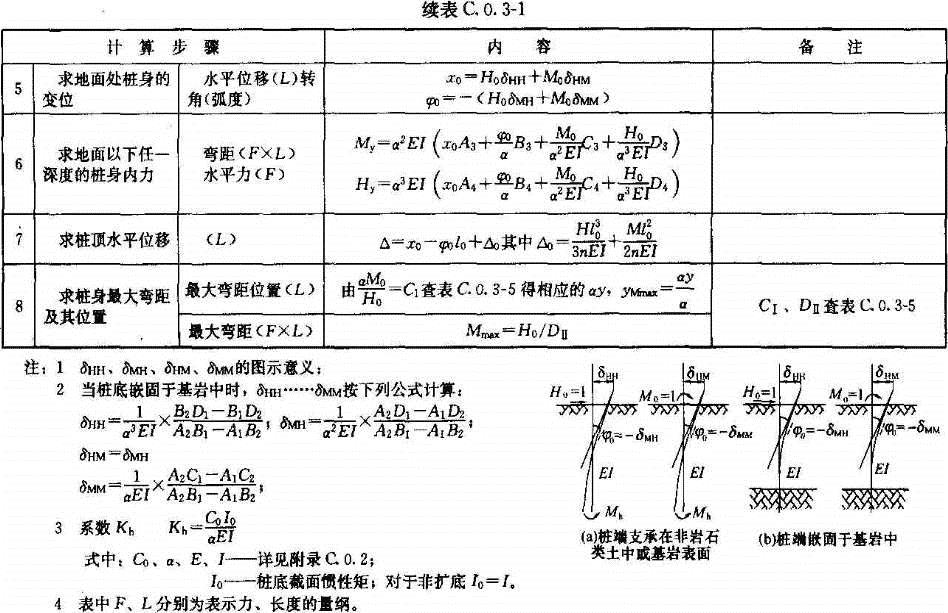 续表 C.0.3-1
计 算 步 骤 内 容 备 注
5 求地面处桩身的变位 水平位移(L)转角(弧度) x₀=H₀δHH+M₀δHM
φ₀=-(H₀δMH+M₀δMM)
6 求地面以下任一深度的桩身内力 弯距(F×L) 水平力(F) My=α²EI(x₀A₃+φ₀/α B₃+M₀/α²EI C₃+H₀/α³EI D₃)
Hy=α³EI(x₀A₄+φ₀/α B₄+M₀/α²EI C₄+H₀/α³EI D₄)
7 求桩顶水平位移 (L) Δ=x₀-φ₀l₀+Δ₀其中Δ₀=Hl₀³/3nEI+Ml₀²/2nEI
8 求桩身最大弯距及其位置 最大弯距位置(L) 由αM₀/H₀=CⅠ查表C.0.3-5得相应的αy, yMmax=αy/α CⅠ、DⅡ查表C.0.3-5
最大弯距(F×L) Mmax=H₀/DⅡ
注:1 δHH、δMH、δHM、δMM的图示意义;
2 当桩底嵌固于基岩中时,δHH……δMM按下列公式计算:
δHH=1/α³EI×(B₂D₁-B₁D₂)/(A₂B₁-A₁B₂); δMH=1/α²EI×(A₂D₁-A₁D₂)/(A₂B₁-A₁B₂);
δHM=δMH
δMM=1/αEI×(A₂C₁-A₁C₂)/(A₂B₁-A₁B₂);
3 系数Kh Kh=C₀I₀/αEI
式中:C₀、α、E、I——详见附录C.0.2;
I₀——桩底截面惯性矩;对于非扩底I₀=I。
4 表中F、L分别为表示力、长度的量纲。
δHH δHM δHH δHM
H₀=1 M₀=1 H₀=1 M₀=1
φ₀=-δMH φ₀=-δMM φ₀=-δMH φ₀=-δMM
EI EI EI EI
Mh Mh
(a)桩端支承在非岩石类土中或基岩表面
(b)桩端嵌固于基岩中